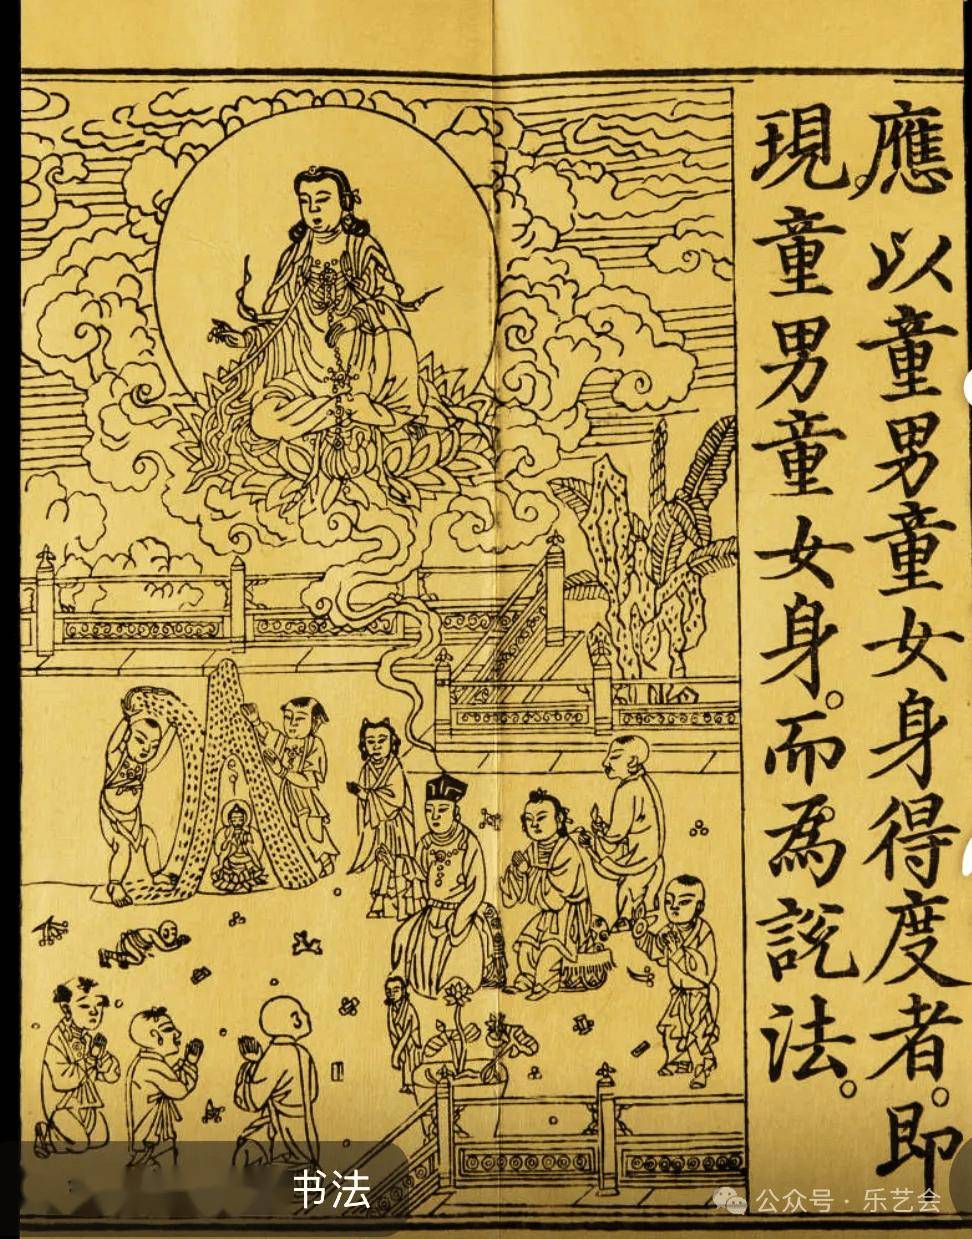 應以童男童女身得度者。即
現童男童女身。而為説法。
书法
公众号·乐艺会